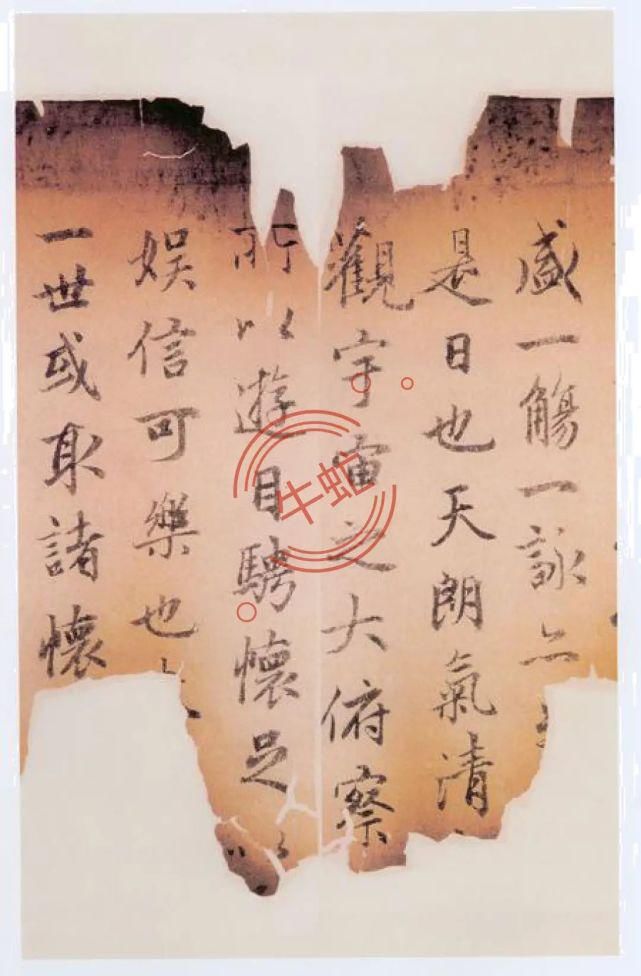 盛一觴一詠亦
是日也天朗氣清
觀宇宙之大俯察
所以遊目騁懷足以
娛信可樂也
一世或取諸懷
牛蛇